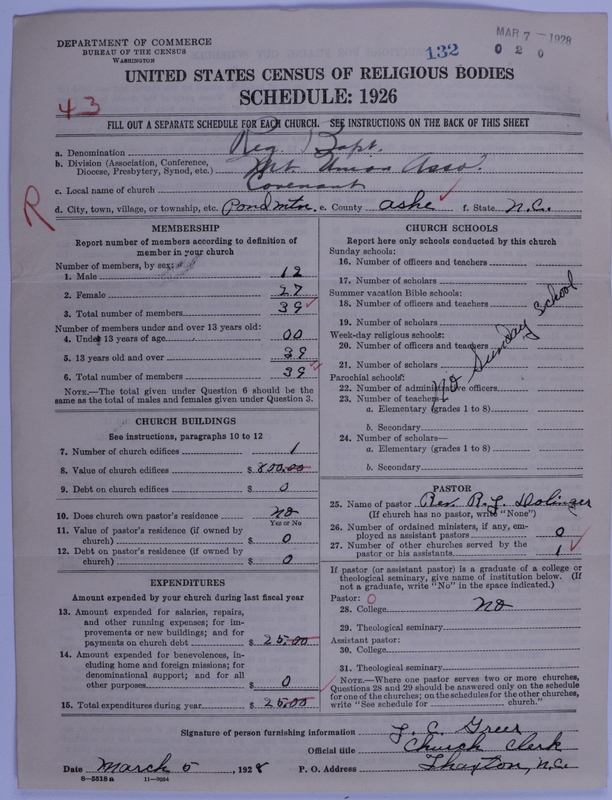 DEPARTMENT OF COMMERCE
BUREAU OF THE CENSUS
WASHINGTON
132
MAR 7 - 1928
0 2 0
UNITED STATES CENSUS OF RELIGIOUS BODIES
SCHEDULE: 1926
43
FILL OUT A SEPARATE SCHEDULE FOR EACH CHURCH. SEE INSTRUCTIONS ON THE BACK OF THIS SHEET
a. Denomination Reg. Bapt.
b. Division (Association, Conference, Diocese, Presbytery, Synod, etc.) Mt. Union Asso.
c. Local name of church Covenant
R
d. City, town, village, or township, etc. Pond mtn. e. County ashe f. State N.C.
MEMBERSHIP
Report number of members according to definition of
member in your church
Number of members, by sex:
1. Male 12
2. Female 27
3. Total number of members 39
Number of members under and over 13 years old:
4. Under 13 years of age 00
5. 13 years old and over 39
6. Total number of members 39
NOTE.—The total given under Question 6 should be the
same as the total of males and females given under Question 3.
CHURCH BUILDINGS
See instructions, paragraphs 10 to 12
7. Number of church edifices 1
8. Value of church edifices $ 800.00
9. Debt on church edifices $ 0
10. Does church own pastor's residence no
Yes or No
11. Value of pastor's residence (if owned by
church) $ 0
12. Debt on pastor's residence (if owned by
church) $ 0
EXPENDITURES
Amount expended by your church during last fiscal year
13. Amount expended for salaries, repairs,
and other running expenses; for im-
provements or new buildings; and for
payments on church debt $ 25.00
14. Amount expended for benevolences, in-
cluding home and foreign missions; for
denominational support; and for all
other purposes $ 0
15. Total expenditures during year $ 25.00
CHURCH SCHOOLS
Report here only schools conducted by this church
Sunday schools:
16. Number of officers and teachers
17. Number of scholars
Summer vacation Bible schools:
18. Number of officers and teachers
19. Number of scholars
Week-day religious schools:
20. Number of officers and teachers
21. Number of scholars
Parochial schools:
22. Number of administrative officers
23. Number of teachers—
a. Elementary (grades 1 to 8)
b. Secondary
24. Number of scholars—
a. Elementary (grades 1 to 8)
b. Secondary
No Sunday School
PASTOR
25. Name of pastor Rev. R. L. Dolinger
(If church has no pastor, write "None")
26. Number of ordained ministers, if any, em-
ployed as assistant pastors 0
27. Number of other churches served by the
pastor or his assistants 1
If pastor (or assistant pastor) is a graduate of a college or
theological seminary, give name of institution below. (If
not a graduate, write "No" in the space indicated.)
Pastor: 0
28. College no
29. Theological seminary
Assistant pastor:
30. College
31. Theological seminary
NOTE.—Where one pastor serves two or more churches,
Questions 28 and 29 should be answered only on the schedule
for one of the churches; on the schedules for the other churches,
write "See schedule for church."
Signature of person furnishing information J. C. Greer
Official title Church Clerk
Date March 5, 1928 P. O. Address Thaxton, N.C.
8—5518a 11—9264